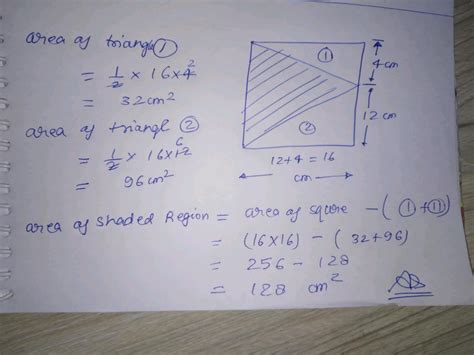 area of triangle ①
= 1/2 × 16 × 4 2
= 32 cm²
area of triangl ②
= 1/2 × 16 × 12 6
= 96 cm²
①
4 cm
12 cm
②
12 + 4 = 16
cm
area of shaded Region = area of squre - ( ① + ⑪ )
= (16 × 16) - ( 32 + 96)
= 256 - 128
= 128 cm²